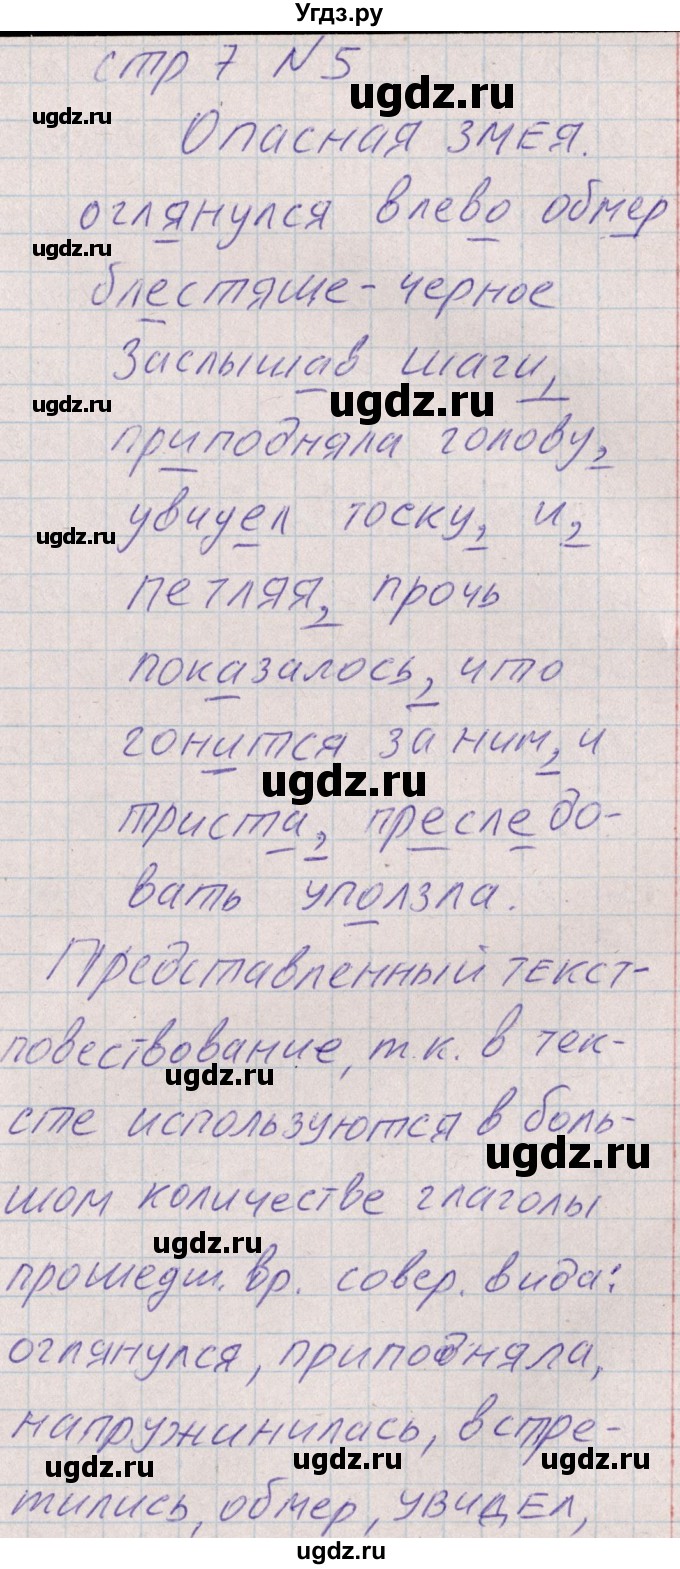 Угдз.ру
стр 7 N 5
ugdz.ru
ugdz.ru
Опасная змея.
оглянулся влево обмер
ugdz.ru
блестяще-черное
Заслышав шаги,
ugdz.ru
ugdz.ru
приподняла голову,
увидел тоску, и,
ugdz.ru
петляя, прочь
показалось, что
гонится за ним, и
ugdz.ru
триста, преследо-
вать уползла.
Представленный текст-
повествование, т.к. в тек-
ugdz.ru
сте используются в боль-
ugdz.ru
шом количестве глаголы
ugdz.ru
прошедш. вр. совер. вида:
оглянулся, приподняла,
напружинилась, встре-
ugdz.ru
ugdz.ru
ugdz.ru
тились, обмер, увидел,
ugdz.ru